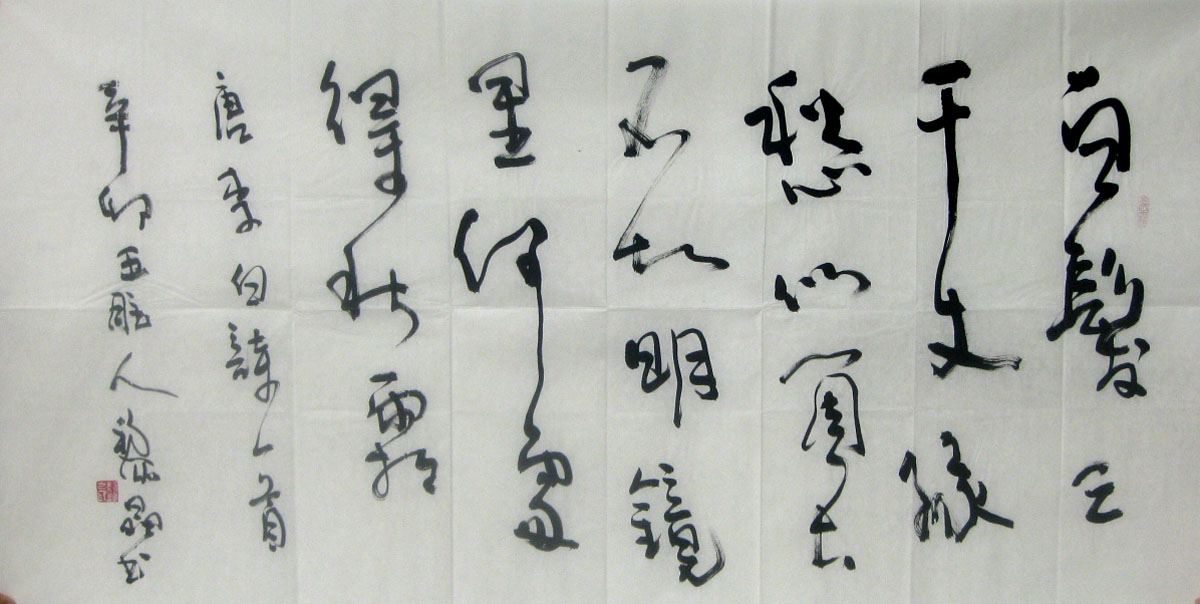 白髮三
千丈緣
愁似箇長
不知明鏡
里何處
得秋霜
唐李白詩一首
辛卯人黎晶书